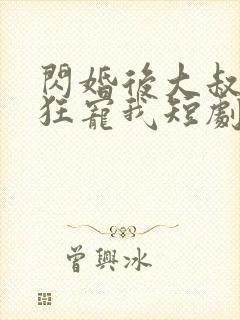 閃婚後大叔
狂寵我短劇
曾興冰